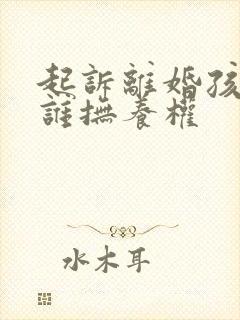 起訴離婚孩
誰撫養權
水木耳